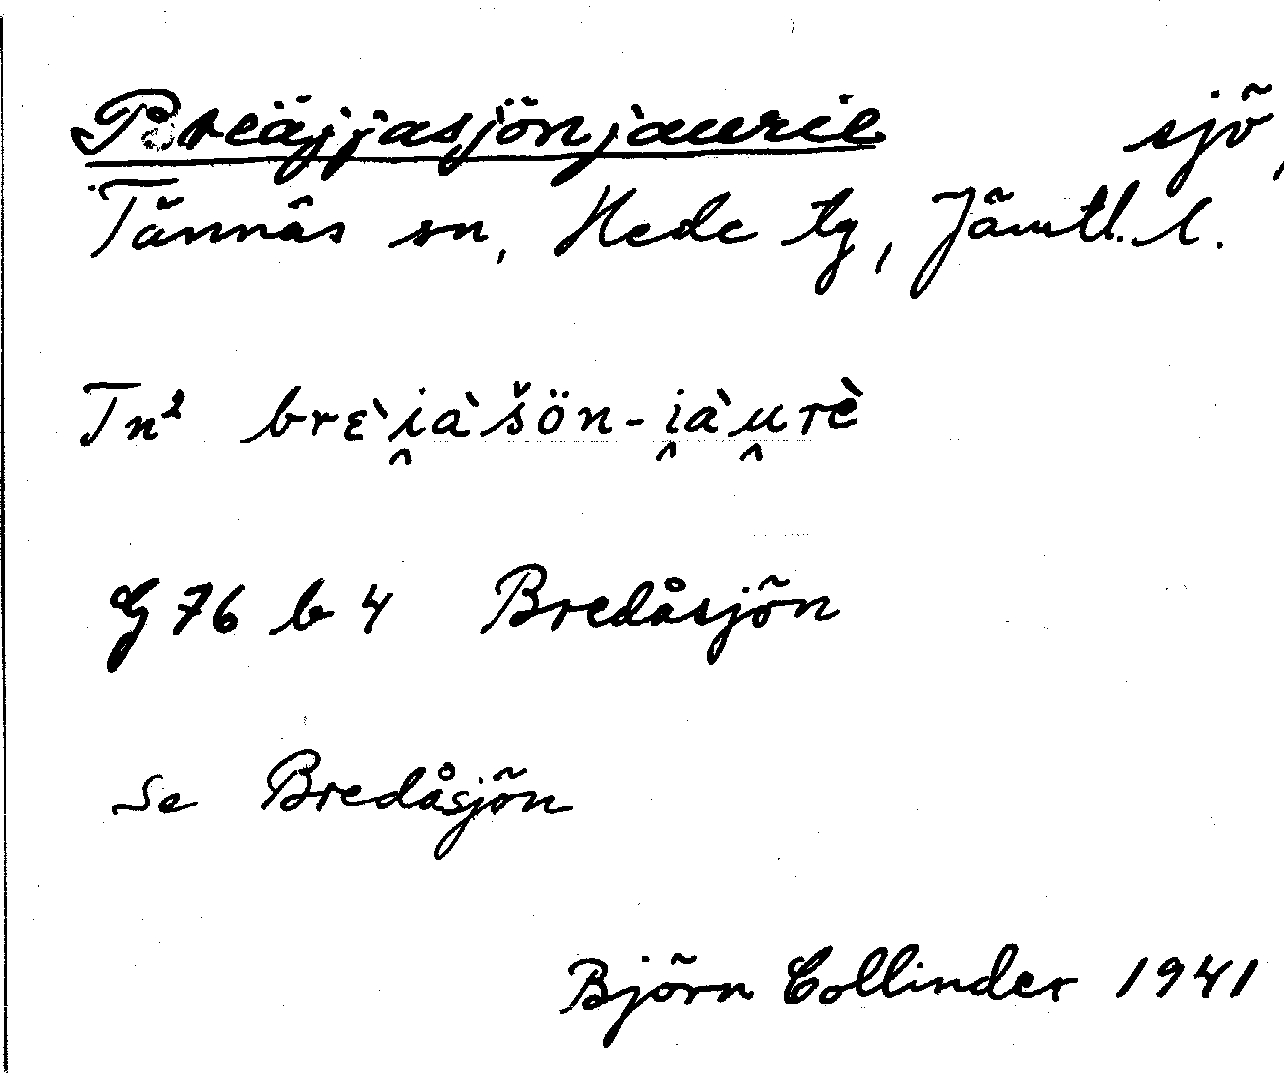 Breäjjasjönjaurie sjö,
Tännäs sn, Hede tg, Jämtl. l.
Tn² brɛ̀i̯àšön-i̯àu̯rè
G 76 b 4 Bredåsjön
se Bredåsjön
Björn Collinder 1941